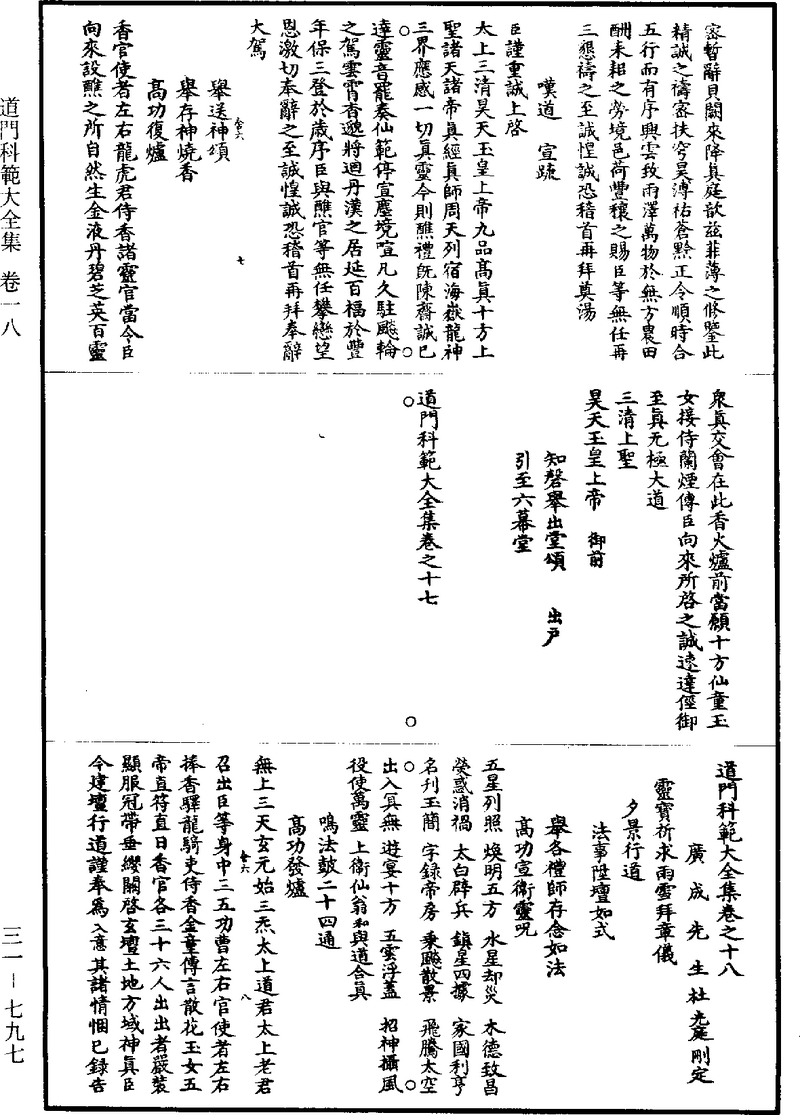 道門科範大全集 卷一八
三一－七九七
密暫辭貝闕來降真庭歆茲菲薄之修鑒此
精誠之禱密扶穹昊溥祐蒼黔正令順時合
五行而有序興雲致雨澤萬物於無方農田
酬耒耜之勞境邑荷豐穰之賜臣等無任再
三懇禱之至誠惶誠恐稽首再拜奠湯
嘆道 宣疏
臣謹重誠上啓
太上三清昊天玉皇上帝九品高真十方上
聖諸天諸帝真經真師周天列宿海嶽龍神
三界應感一切真靈今則醮禮旣陳齋誠已
達靈音罷奏仙範停宣塵境喧凡久駐飈輪
之駕雲霄香邈將迴丹漢之居延百福於豐
年保三登於歲序臣與醮官等無任攀戀望
恩激切奉辭之至誠惶誠恐稽首再拜奉辭
大駕
舉送神頌
舉存神燒香
高功復爐
香官使者左右龍虎君侍香諸靈官當令臣
向來設醮之所自然生金液丹碧芝英百靈
七
眾真交會在此香火爐前當願十方仙童玉
女接侍蘭煙傳臣向來所啓之誠速達徑御
至真无極大道
三清上聖
昊天玉皇上帝 御前
知磬舉出堂頌 出戶
引至六幕堂
道門科範大全集卷之十七
道門科範大全集卷之十八
廣成先生杜光庭刪定
靈寶祈求雨雪拜章儀
夕景行道
法事陞壇如式
舉各禮師存念如法
高功宣衛靈咒
五星列照 煥明五方 水星却災 木德致昌
熒惑消禍 太白辟兵 鎮星四據 家國利亨
名刊玉簡 字録帝房 乘飈散景 飛騰太空
出入冥無 遊宴十方 五雲浮蓋 招神攝風
役使萬靈 上衛仙翁和與道合真
鳴法鼓二十四通
高功發爐
無上三天玄元始三炁太上道君太上老君
召出臣等身中三五功曹左右官使者左右
捧香驛龍騎吏侍香金童傳言散花玉女五
帝直符直日香官各三十六人出出者嚴裝
顯服冠帶垂纓關啓玄壇土地方域神真臣
今建壇行道謹奉為入意其諸情悃已録告
八